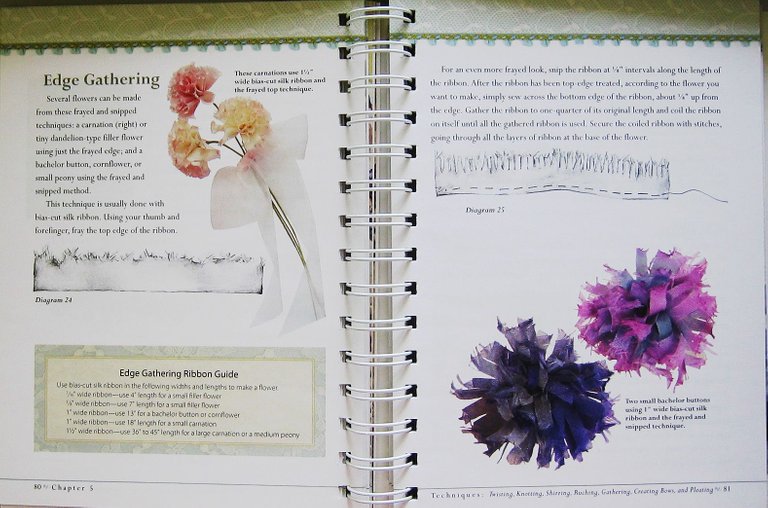 Edge Gathering
Several flowers can be made
from these frayed and snipped
techniques: a carnation (right) or
tiny dandelion-type filler flower
using just the frayed edge; and a
bachelor button, cornflower, or
small peony using the frayed and
snipped method.
This technique is usually done with
bias-cut silk ribbon. Using your thumb and
forefinger, fray the top edge of the ribbon.
These carnations use 1½"
wide bias-cut silk ribbon and
the frayed top technique.
Diagram 24
Edge Gathering Ribbon Guide
Use bias-cut silk ribbon in the following widths and lengths to make a flower
wide ribbon—use 4" length for a small filler flower
wide ribbon—use 7" length for a small filler flower
1" wide ribbon—use 13" for a bachelor button or cornflower
1" wide ribbon—use 18" length for a small carnation
1½" wide ribbon—use 36" to 45" length for a large carnation or a medium peony
80 Chapter 5
For an even more frayed look, snip the ribbon at ¼" intervals along the length of
the ribbon. After the ribbon has been top-edge treated, according to the flower you
want to make, simply sew across the bottom edge of the ribbon, about up from
the edge. Gather the ribbon to one-quarter of its original length and coil the ribbon
on itself until all the gathered ribbon is used. Secure the coiled ribbon with stitches,
going through all the layers of ribbon at the base of the flower.
Diagram 25
Two small bachelor buttons
using 1" wide bias-cut silk
ribbon and the frayed and
snipped technique.
Techniques: Twisting, Knotting, Shirring, Ruching, Gathering, Creating Bows, and Pleating 81